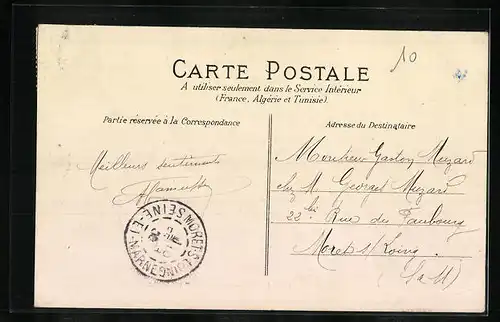 10
CARTE POSTALE
A utiliser seulement dans le Service Intérieur
(France, Algérie et Tunisie).
Partie réservée à la Correspondance
Adresse du Destinataire
Meilleurs sentiments
Monsieur Gaston Muzard
chez M. Georges Muzard
22 bis Rue du Faubourg
Moret s/ Loing
(S-&-M)
MORET-S-LOING
SEINE-ET-MARNE